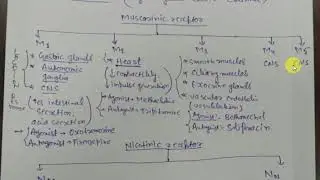 Muscarinic receptor
M1 M2 M3 M4 M5
* Gastric glands
* Autonomic ganglia
* CNS
* Heart
↓ conductibility
↓ impulse generation
* Agonist → Methacholine
* smooth muscles
* ciliary muscles
* Exocrine glands
* vascular endothelia
(vasodilation)
Agonist - Bethanechol
CNS
CNS
intestinal secretion,
acid secretion
Agonist → Oxotremorine
Antagonist → Pirenzepine
Nicotinic receptor
NN